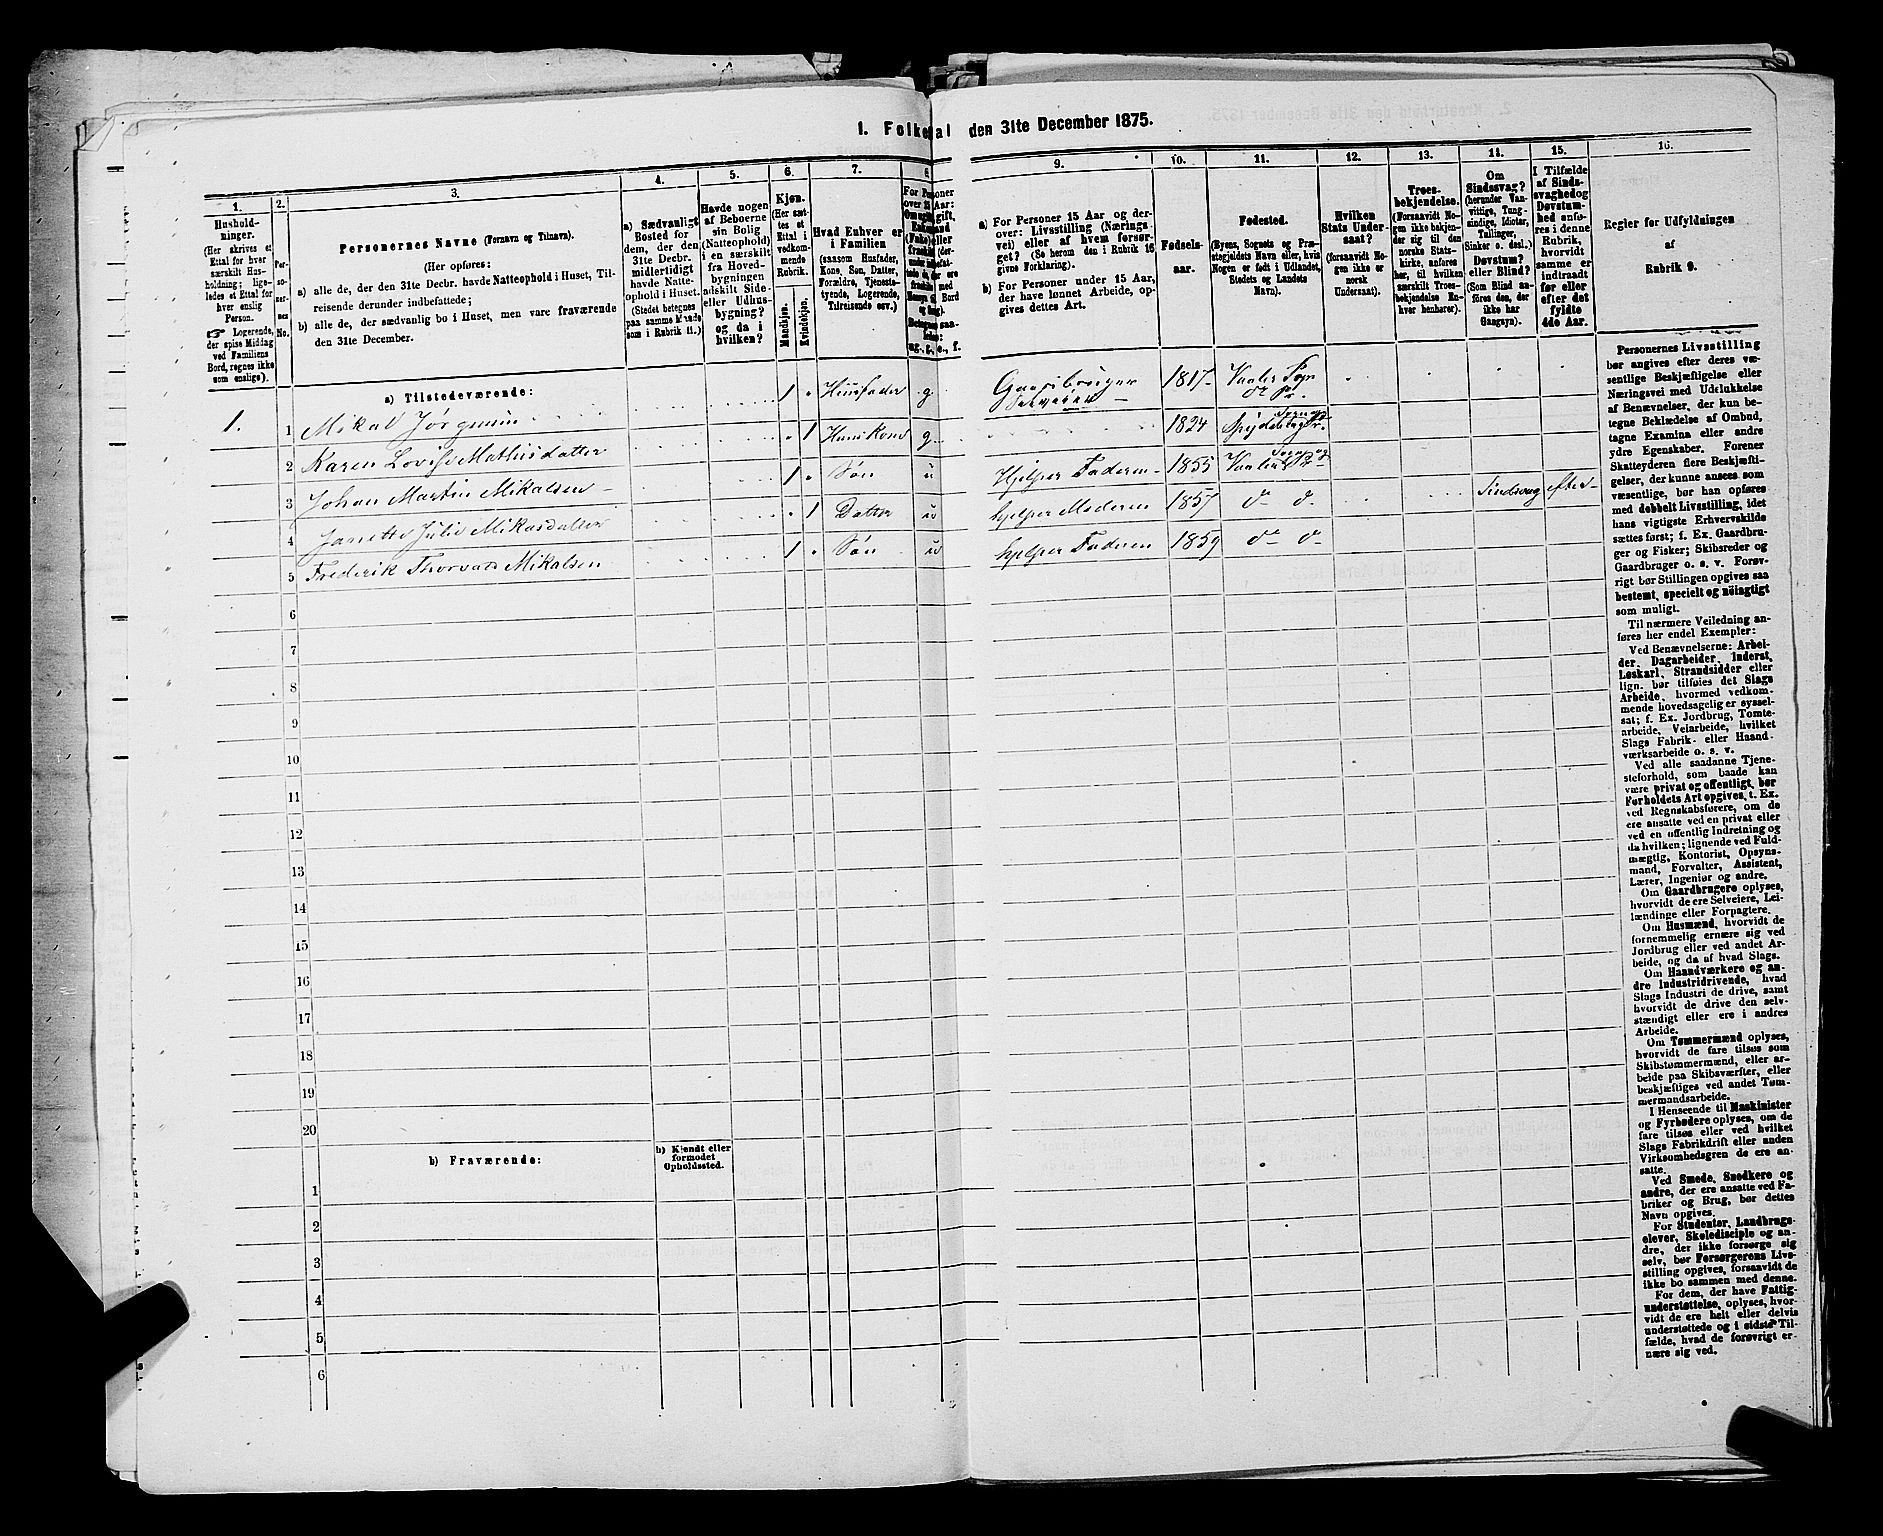 I. Folketal den 31te December 1875.
1.
Hushold-
ninger.
(Her skrives et
Ettal for hver
særskilt Hus-
holdning; lige-
ledes et Ettal for
hver enslig
Person.
Logerende,
der spise Middag
ved Familiens
Bord, regnes ikke
som enslige).
2.
Per-
so-
ner-
nes
No.
3.
Personernes Navne (Fornavn og Tilnavn).
(Her opføres:
a) alle de, der den 31te Decbr. havde Natteophold i Huset, Til-
reisende derunder indbefattede;
b) alle de, der sædvanlig bo i Huset, men vare fraværende
den 31te December.
4.
a) Sædvanligt
Bosted for
dem, der den
31te Decbr.
midlertidigt
havde Natte-
ophold i Huset.
(Stedet betegnes
paa samme Maade
som i Rubrik 11.)
5.
Havde nogen
af Beboerne
sin Bolig
(Natteophold)
i en særskilt
fra Hoved-
bygningen
adskilt Side-
eller Udhus-
bygning?
og da i
hvilken?
6.
Kjøn.
(Her sæt-
tes et
Ettal i
vedkom-
mende
Rubrik.
Mandkjøn.
Kvindekjøn.
7.
Hvad Enhver er
i Familien
(saasom Husfader,
Kone, Søn, Datter,
Forældre, Tjeneste-
tyende, Logerende,
Tilreisende osv.)
8.
9.
a) For Personer 15 Aar og der-
over: Livsstilling (Nærings-
vei) eller af hvem forsør-
get? (Se herom den i Rubrik 16
givne Forklaring).
b) For Personer under 15 Aar,
der have lønnet Arbeide, op-
gives dettes Art.
10.
Fødsels-
aar.
11.
Fødested.
(Byens, Sognets og Præ-
stegjeldets Navn eller, hvis
Nogen er født i Udlandet,
Stedets og Landets
Navn).
12.
Hvilken
Stats Under-
saat?
(forsaavidt No-
gen ikke er
norsk
Undersaat).
13.
Troes-
bekjendelse.
(Forsaavidt No-
gen ikke bekjen-
der sig til den
norske Stats-
kirke, anføres
her, til hvilken
særskilt Troes-
bekjendelse En-
hver henhører).
14.
Om
Sindssvag?
(herunder Van-
vittige, Tung-
sindige, Idioter,
Tullinger,
Sinker o. desl.)
Døvstum?
eller Blind?
(Som Blind an-
føres den, der
ikke har
Gangsyn).
15.
I Tilfælde
af Sinds-
svaghed og
Døvstum-
hed anfø-
res i denne
Rubrik,
hvorvidt
samme er
indtraadt
før eller
efter det
fyldte
4de Aar.
16.
Regler for Udfyldningen
af
Rubrik 9.
a) Tilstedeværende:
1. 1 Mikal Jørgensen 1 Huusfader g. Gaardbruger Selveier 1817 Vaaler Sogn
2 Karen Lovise Mathisdatter 1 Huus Kone g. 1824
3 Johan Martin Mikalsen 1 Søn u Hjelper Faderen 1855 Vaaler
4 Janette Julie Mikalsdatter 1 Datter u hjelper Moderen 1857 do do Sindsvag efter
5 Frederik Thorvald Mikalsen 1 Søn u hjelper Faderen 1859 do do
6
7
8
9
10
11
12
13
14
15
16
17
18
19
20
b) Fraværende:
b) Kjendt eller
formodet
Opholdssted.
1
2
3
4
5
6
Personernes Livsstilling
bør angives efter deres væ-
sentlige Beskjæftigelse eller
Næringsvei med Udelukkelse
af Benævnelser, der kun be-
tegne Beklædelse af Ombud,
tagne Examina eller andre
ydre Egenskaber. Forener
Skatteyderen flere Beskjæfti-
gelser, der kunne ansees som
væsentlige, bør han opføres
med dobbelt Livsstilling, idet
hans vigtigste Erhvervskilde
sættes først; f. Ex. Gaardbru-
ger og Fisker; Skibsreder og
Gaardbruger o. s. v. Forøv-
rigt bør Stillingen opgives saa
bestemt, specielt og nøiagtigt
som muligt.
Til nærmere Veiledning an-
føres her endel Exempler:
Ved Benævnelserne: Arbei-
der, Dagarbeider, Inderst,
Løskarl, Strandsidder eller
lign. bør tilføies det Slags
Arbeide, hvormed vedkom-
mende hovedsagelig er syssel-
sat; f. Ex. Jordbrug, Tomte-
arbeide, Veiarbeide, hvilket
Slags Fabrik- eller Haand-
værksarbeide o. s. v.
Ved alle saadanne Tjene-
steforhold, som baade kan
være privat og offentligt, bør
Forholdets Art opgives, t. Ex.
ved Regnskabsførere, om de
ere ansatte ved en privat eller
ved en offentlig Indretning og
da hvilken; lignende ved Fuld-
mægtig, Kontorist, Opsyns-
mand, Forvalter, Assistent,
Lærer, Ingeniør og andre.
Om Gaardbrugere oplyses,
hvorvidt de ere Selveiere, Lei-
lændinge eller Forpagtere.
Om Husmænd, hvorvidt de
fornemmelig ernære sig ved
Jordbrug eller ved andet Ar-
beide, og da af hvad Slags.
Om Haandværkere og an-
dre Industridrivende, hvad
Slags Industri de drive, samt
hvorvidt de drive den selv-
stændigt eller ere i andres
Arbeide.
Om Tømmermænd oplyses,
hvorvidt de fare tilsøs som
Skibstømmermænd, eller ar-
beide paa Skibsværfter, eller
beskjæftiges ved andet Tøm-
mermandsarbeide.
I Henseende til Maskinister
og Fyrbødere oplyses, om de
fare tilsøs eller ved hvilket
Slags Fabrikdrift eller anden
Virksomhedsgren de ere an-
satte.
Ved Smede, Snedkere og
andre, der ere ansatte ved Fa-
briker og Brug, bør dettes
Navn opgives.
For Studenter, Landbrugs-
elever, Skoledisciple og an-
dre, der ikke forsørge sig
selv, bør Forsørgerens Livs-
stilling opgives, forsaavidt de
ikke bo sammen med denne.
For dem, der have Fattig-
understøttelse, oplyses, hvor-
vidt de ere helt eller delvis
understøttede og i sidste Til-
fælde, hvad de forøvrigt er-
nære sig ved.